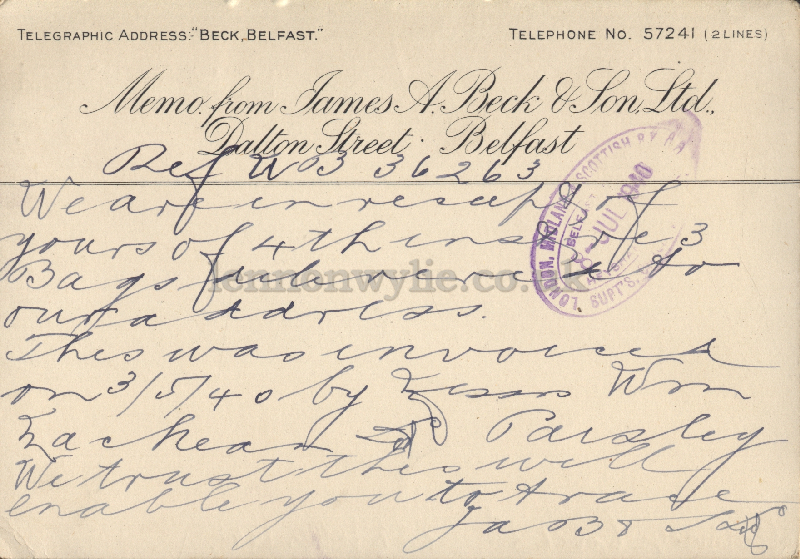 TELEGRAPHIC ADDRESS: "BECK, BELFAST."
TELEPHONE No. 57241 (2 LINES)
Memo. from James A. Beck & Son, Ltd.,
Dalton Street · Belfast
Ref W03 36263
We are in receipt of
yours of 4th inst re 3
Bags to
our address.
This was invoiced
on 3/5/40 by Messrs Wm
Paisley
We trust this will
enable you to trace
Jas B & Son
LONDON, MIDLAND SCOTTISH RY
BELFAST
8 - JUL 1940
SUPT'S.
lennonwylie.co.uk